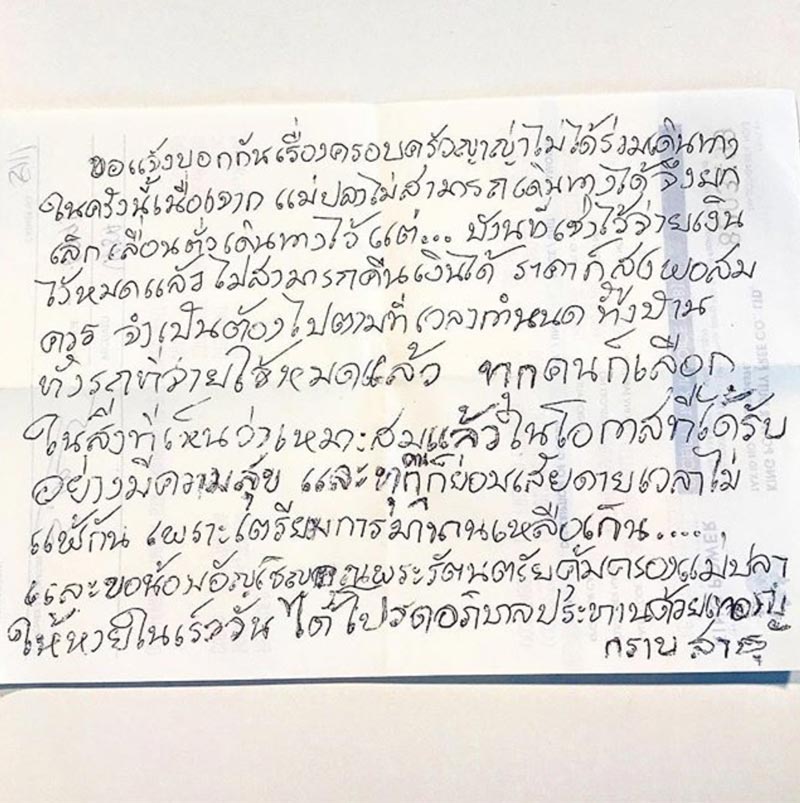 ขอแจ้งบอกกันเรื่องครอบครัวญาญ่าไม่ได้ร่วมเดินทาง
ในครั้งนี้เนื่องจาก แม่ปลาไม่สามารถเดินทางได้ จึงยก
เลิกเลื่อนตั๋วเดินทางไว้ แต่... บ้านที่เช่าไว้จ่ายเงิน
ไว้หมดแล้วไม่สามารถคืนเงินได้ ราคาก็สูงพอสม
ควร จำเป็นต้องไปตามที่เวลากำหนด ทั้งบ้าน
ทั้งรถที่จ่ายใช้หมดแล้ว ทุกคนก็เลือก
ในสิ่งที่เห็นว่าเหมาะสมแล้วในโอกาสที่ได้รับ
อย่างมีความสุข และทุกคนก็ย่อมเสียดายเวลาไม่
แพ้กัน เพราะเตรียมการมานานเหลือเกิน.....
และขอน้อมอัญเชิญคุณพระรัตนตรัยคุ้มครองแม่ปลา
ให้หายในเร็ววัน ได้โปรดอภิบาลประทานด้วยเทอญ
กราบ สาธุ
KING POWER